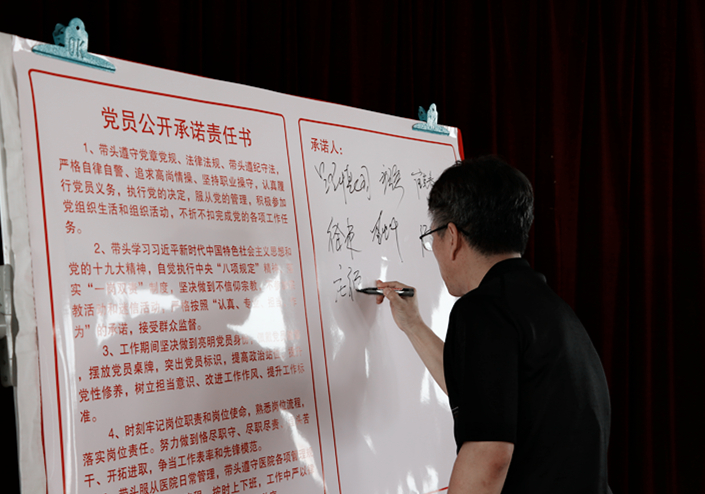 党员公开承诺责任书
1、带头遵守党章党规、法律法规、带头遵纪守法，
严格自律自警、追求高尚情操、坚持职业操守，认真履
行党员义务，执行党的决定，服从党的管理，积极参加
党组织生活和组织活动，不折不扣完成党的各项工作任
务。
2、带头学习习近平新时代中国特色社会主义思想和
党的十九大精神，自觉执行中央“八项规定”精神
实“一岗双责”制度，坚决做到不信仰宗教
教活动和迷信活动，严格按照“认真、专
为”的承诺，接受群众监督。
3、工作期间坚决做到亮明党员身份
，摆放党员桌牌，突出党员标识，提高政治站位
党性修养，树立担当意识、改进工作作风、提升工作标
准。
4、时刻牢记岗位职责和岗位使命，熟悉岗位流程，
落实岗位责任。努力做到恪尽职守、尽职尽责、苦
干、开拓进取，争当工作表率和先锋模范。
带头服从医院日常管理，带头遵守医院各项管理
按时上下班，工作中严以
承诺人：